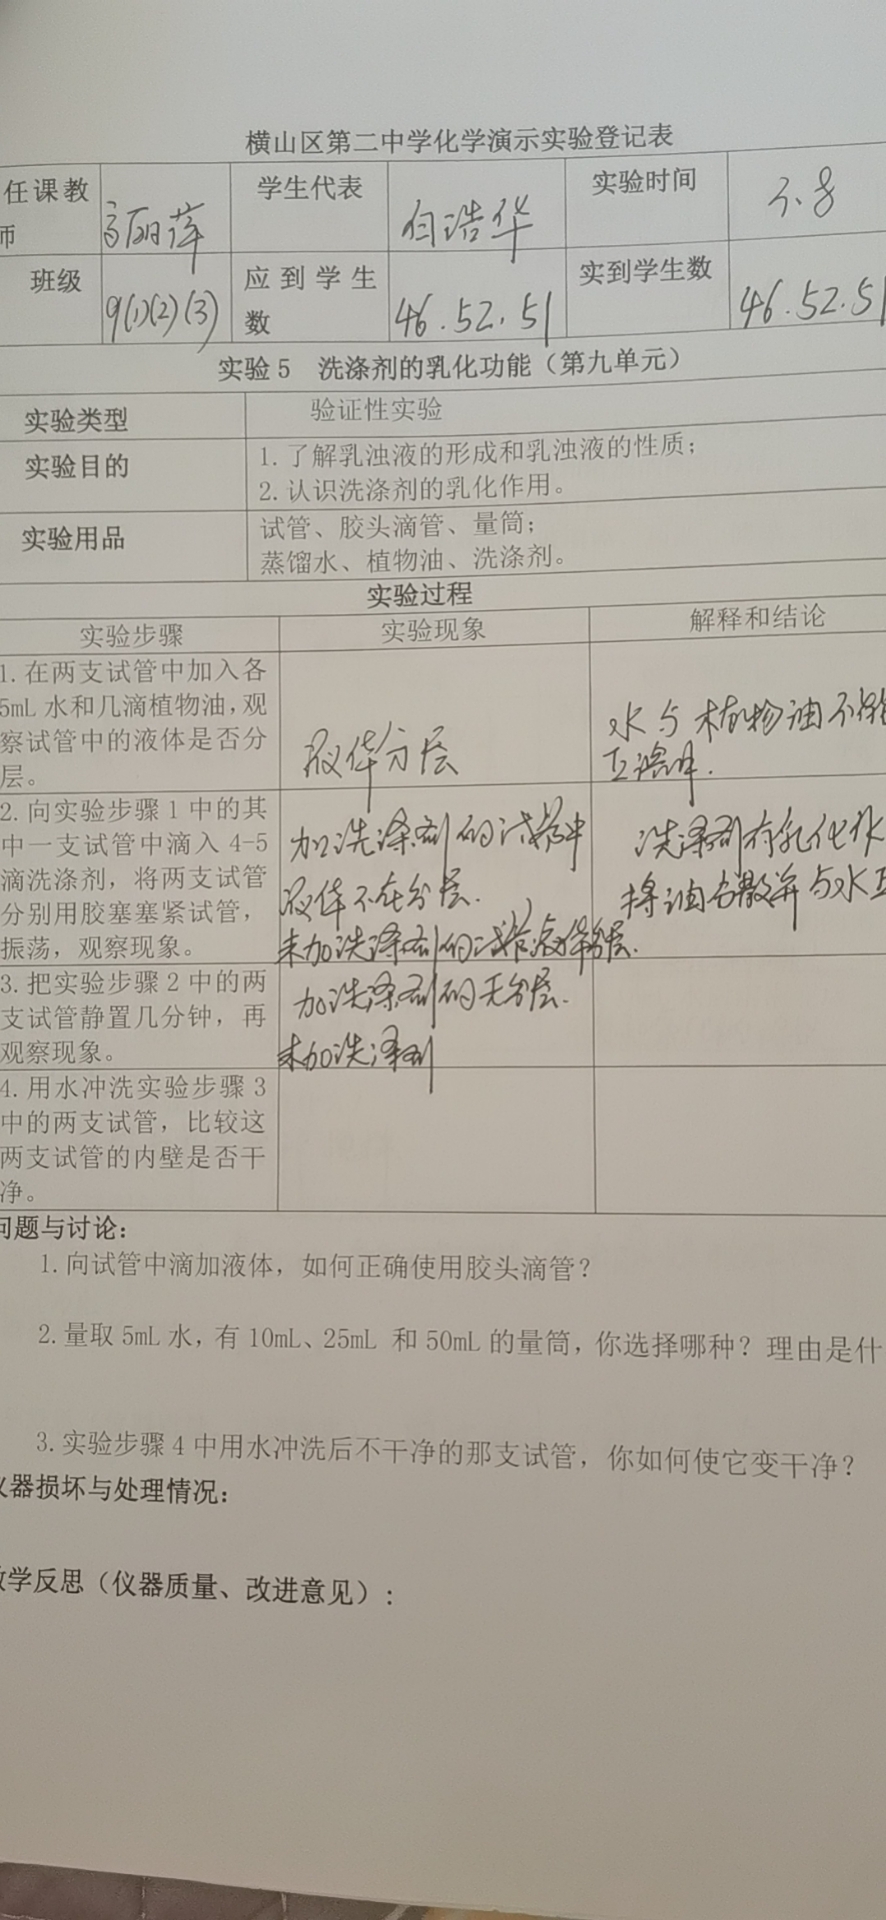 横山区第二中学化学演示实验登记表
任课教师 高丽萍 学生代表 白浩华 实验时间 3.8
班级 9(1)(2)(3) 应到学生数 46.52.51 实到学生数 46.52.51
实验5 洗涤剂的乳化功能（第九单元）
实验类型 验证性实验
实验目的 1.了解乳浊液的形成和乳浊液的性质；
2.认识洗涤剂的乳化作用。
实验用品 试管、胶头滴管、量筒；
蒸馏水、植物油、洗涤剂。
实验过程
实验步骤 实验现象 解释和结论
1.在两支试管中加入各
5mL 水和几滴植物油，观
察试管中的液体是否分
层。
液体分层
水与植物油不能
互溶
2.向实验步骤1中的其
中一支试管中滴入 4-5
滴洗涤剂，将两支试管
分别用胶塞塞紧试管，
振荡，观察现象。
加洗涤剂的试管中
液体不在分层.
未加洗涤剂的试管液体分层.
洗涤剂有乳化作
将油分散并与水互
3.把实验步骤2中的两
支试管静置几分钟，再
观察现象。
加洗涤剂的无分层.
未加洗涤剂
4.用水冲洗实验步骤3
中的两支试管，比较这
两支试管的内壁是否干
净。
问题与讨论：
1.向试管中滴加液体，如何正确使用胶头滴管？
2.量取 5mL 水，有 10mL、25mL 和 50mL 的量筒，你选择哪种？理由是什
3.实验步骤4中用水冲洗后不干净的那支试管，你如何使它变干净？
仪器损坏与处理情况：
教学反思（仪器质量、改进意见）：